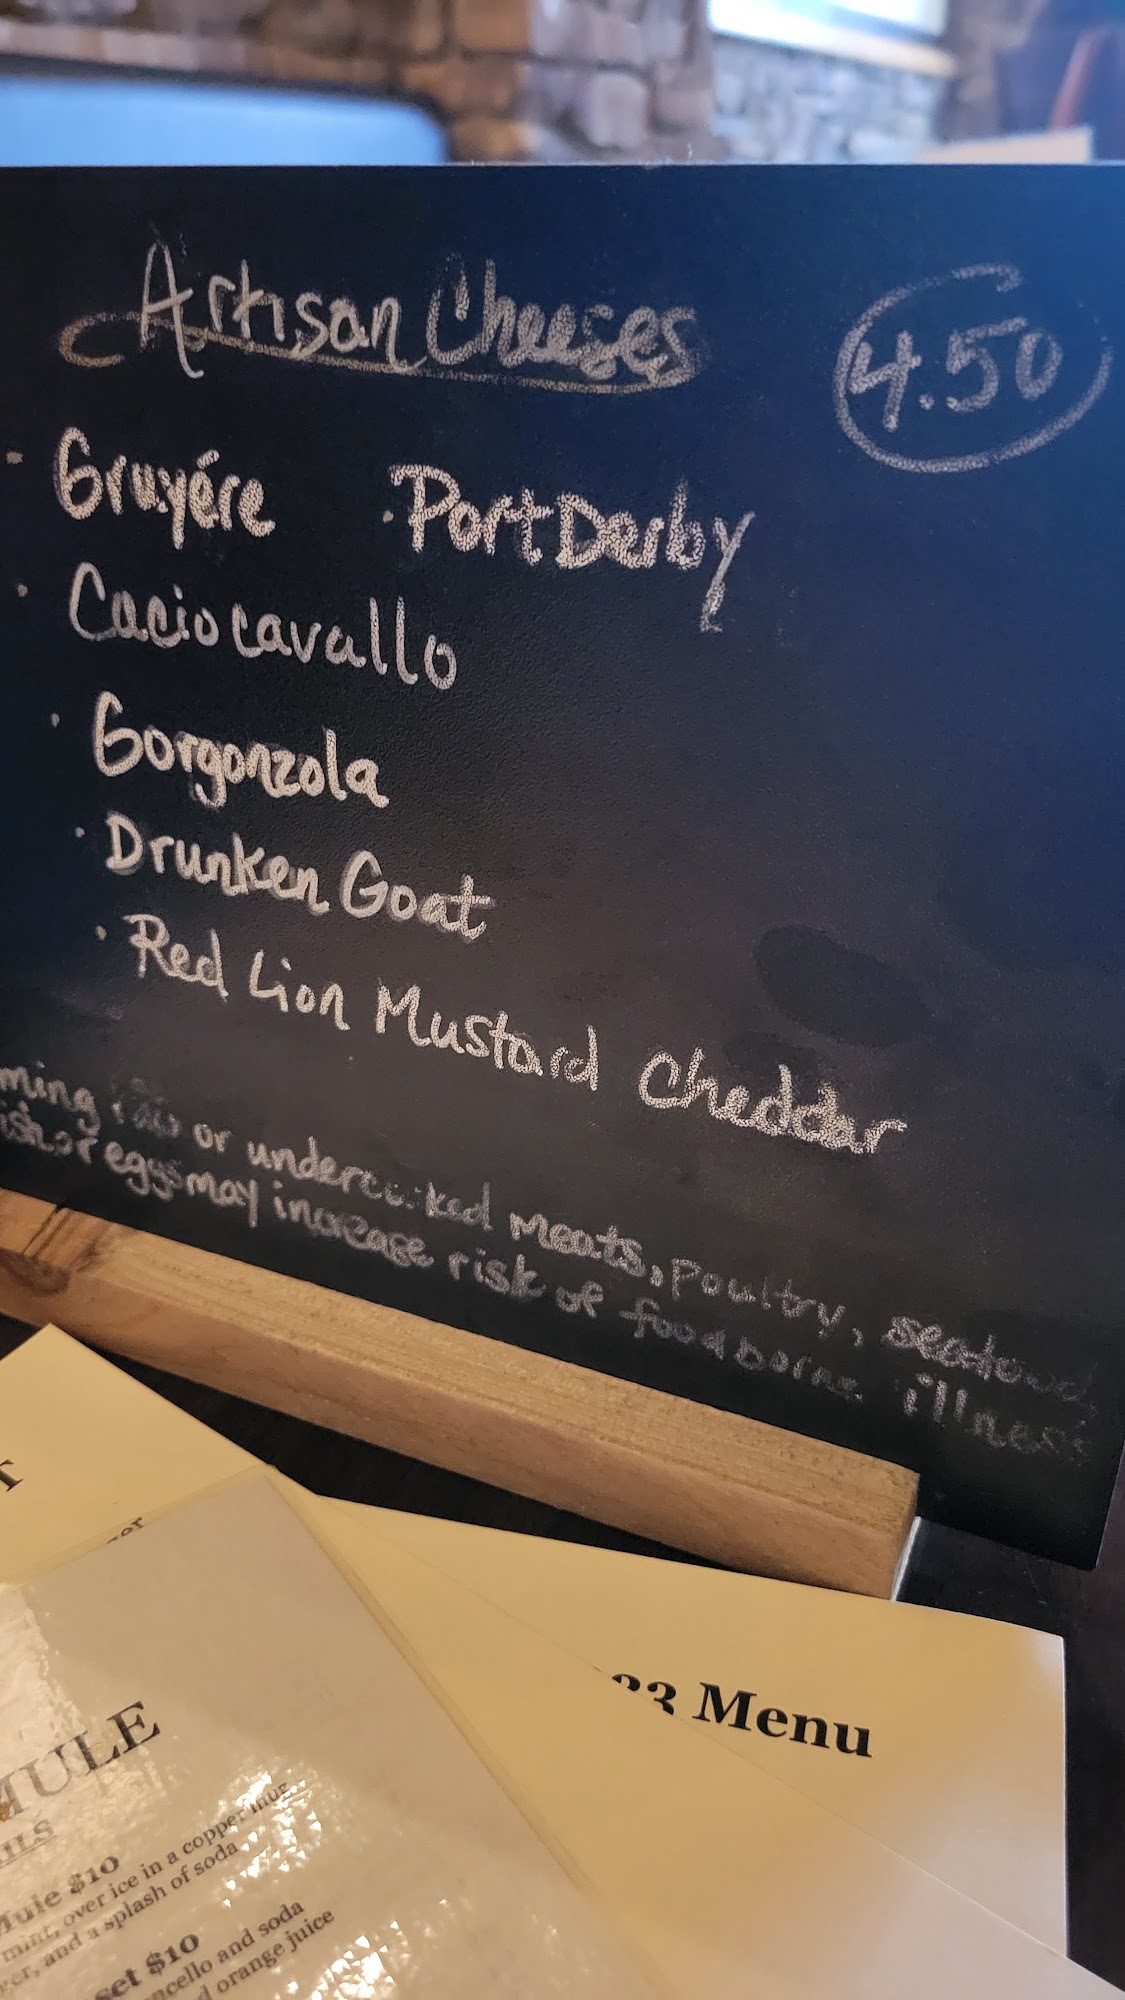 Artisan Cheeses 4.50
· Gruyére · Port Derby
· Caciocavallo
· Gorgonzola
· Drunken Goat
· Red Lion Mustard Cheddar
ming raw or undercooked meats, poultry, seafood,
ish or eggs may increase risk of foodborne illness
T
33 Menu
MULE
ILS
Mule $10
mint, over ice in a copper mug,
ger, and a splash of soda
set $10
oncello and soda
d orange juice